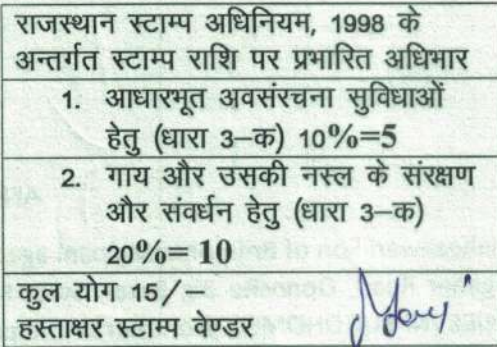 राजस्थान स्टाम्प अधिनियम, 1998 के
अन्तर्गत स्टाम्प राशि पर प्रभारित अधिभार
1. आधारभूत अवसंरचना सुविधाओं
हेतु (धारा 3–क) 10%=5
2. गाय और उसकी नस्ल के संरक्षण
और संवर्धन हेतु (धारा 3–क)
20%= 10
कुल योग 15/
हस्ताक्षर स्टाम्प वेण्डर